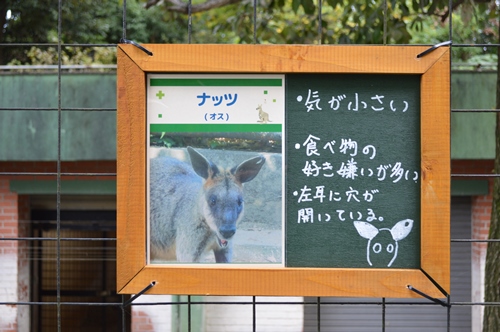 ナッツ
(オス)
・気が小さい
・食べ物の
好き嫌いが多い
・左耳に穴が
開いている。